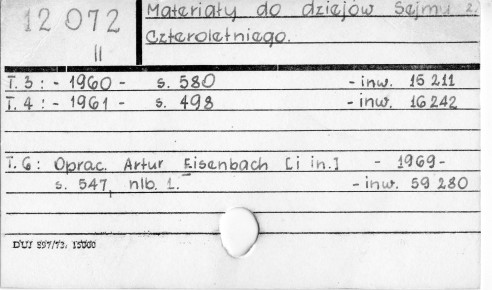 12 072
II
Materiały do dziejów Sejmu 2/
Czteroletniego.
T. 3 : - 1960 - s. 580 - inw. 15 211
T. 4 : - 1961 - s. 498 - inw. 16 242
T. 6 : Oprac. Artur Eisenbach [i in.] - 1969 -
s. 547, nlb. 1. - inw. 59 280
DUJ 897/73. 15000